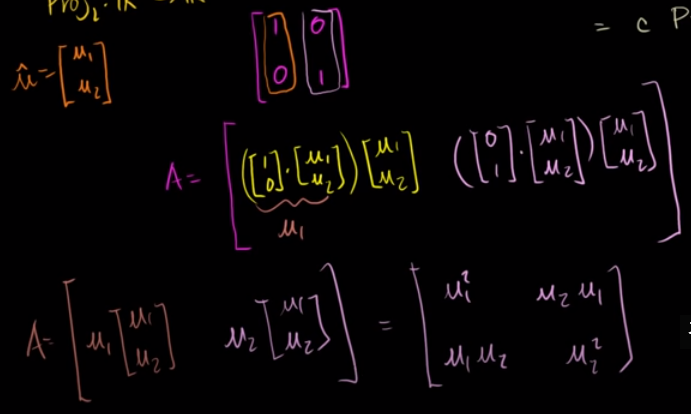 Proj_L: ℝ
= c P
û = [u₁; u₂] [1 0; 0 1]
A = [([1; 0] · [u₁; u₂]) [u₁; u₂] ([0; 1] · [u₁; u₂]) [u₁; u₂]]
u₁
A = [u₁ [u₁; u₂] u₂ [u₁; u₂]] = [u₁² u₂u₁; u₁u₂ u₂²]